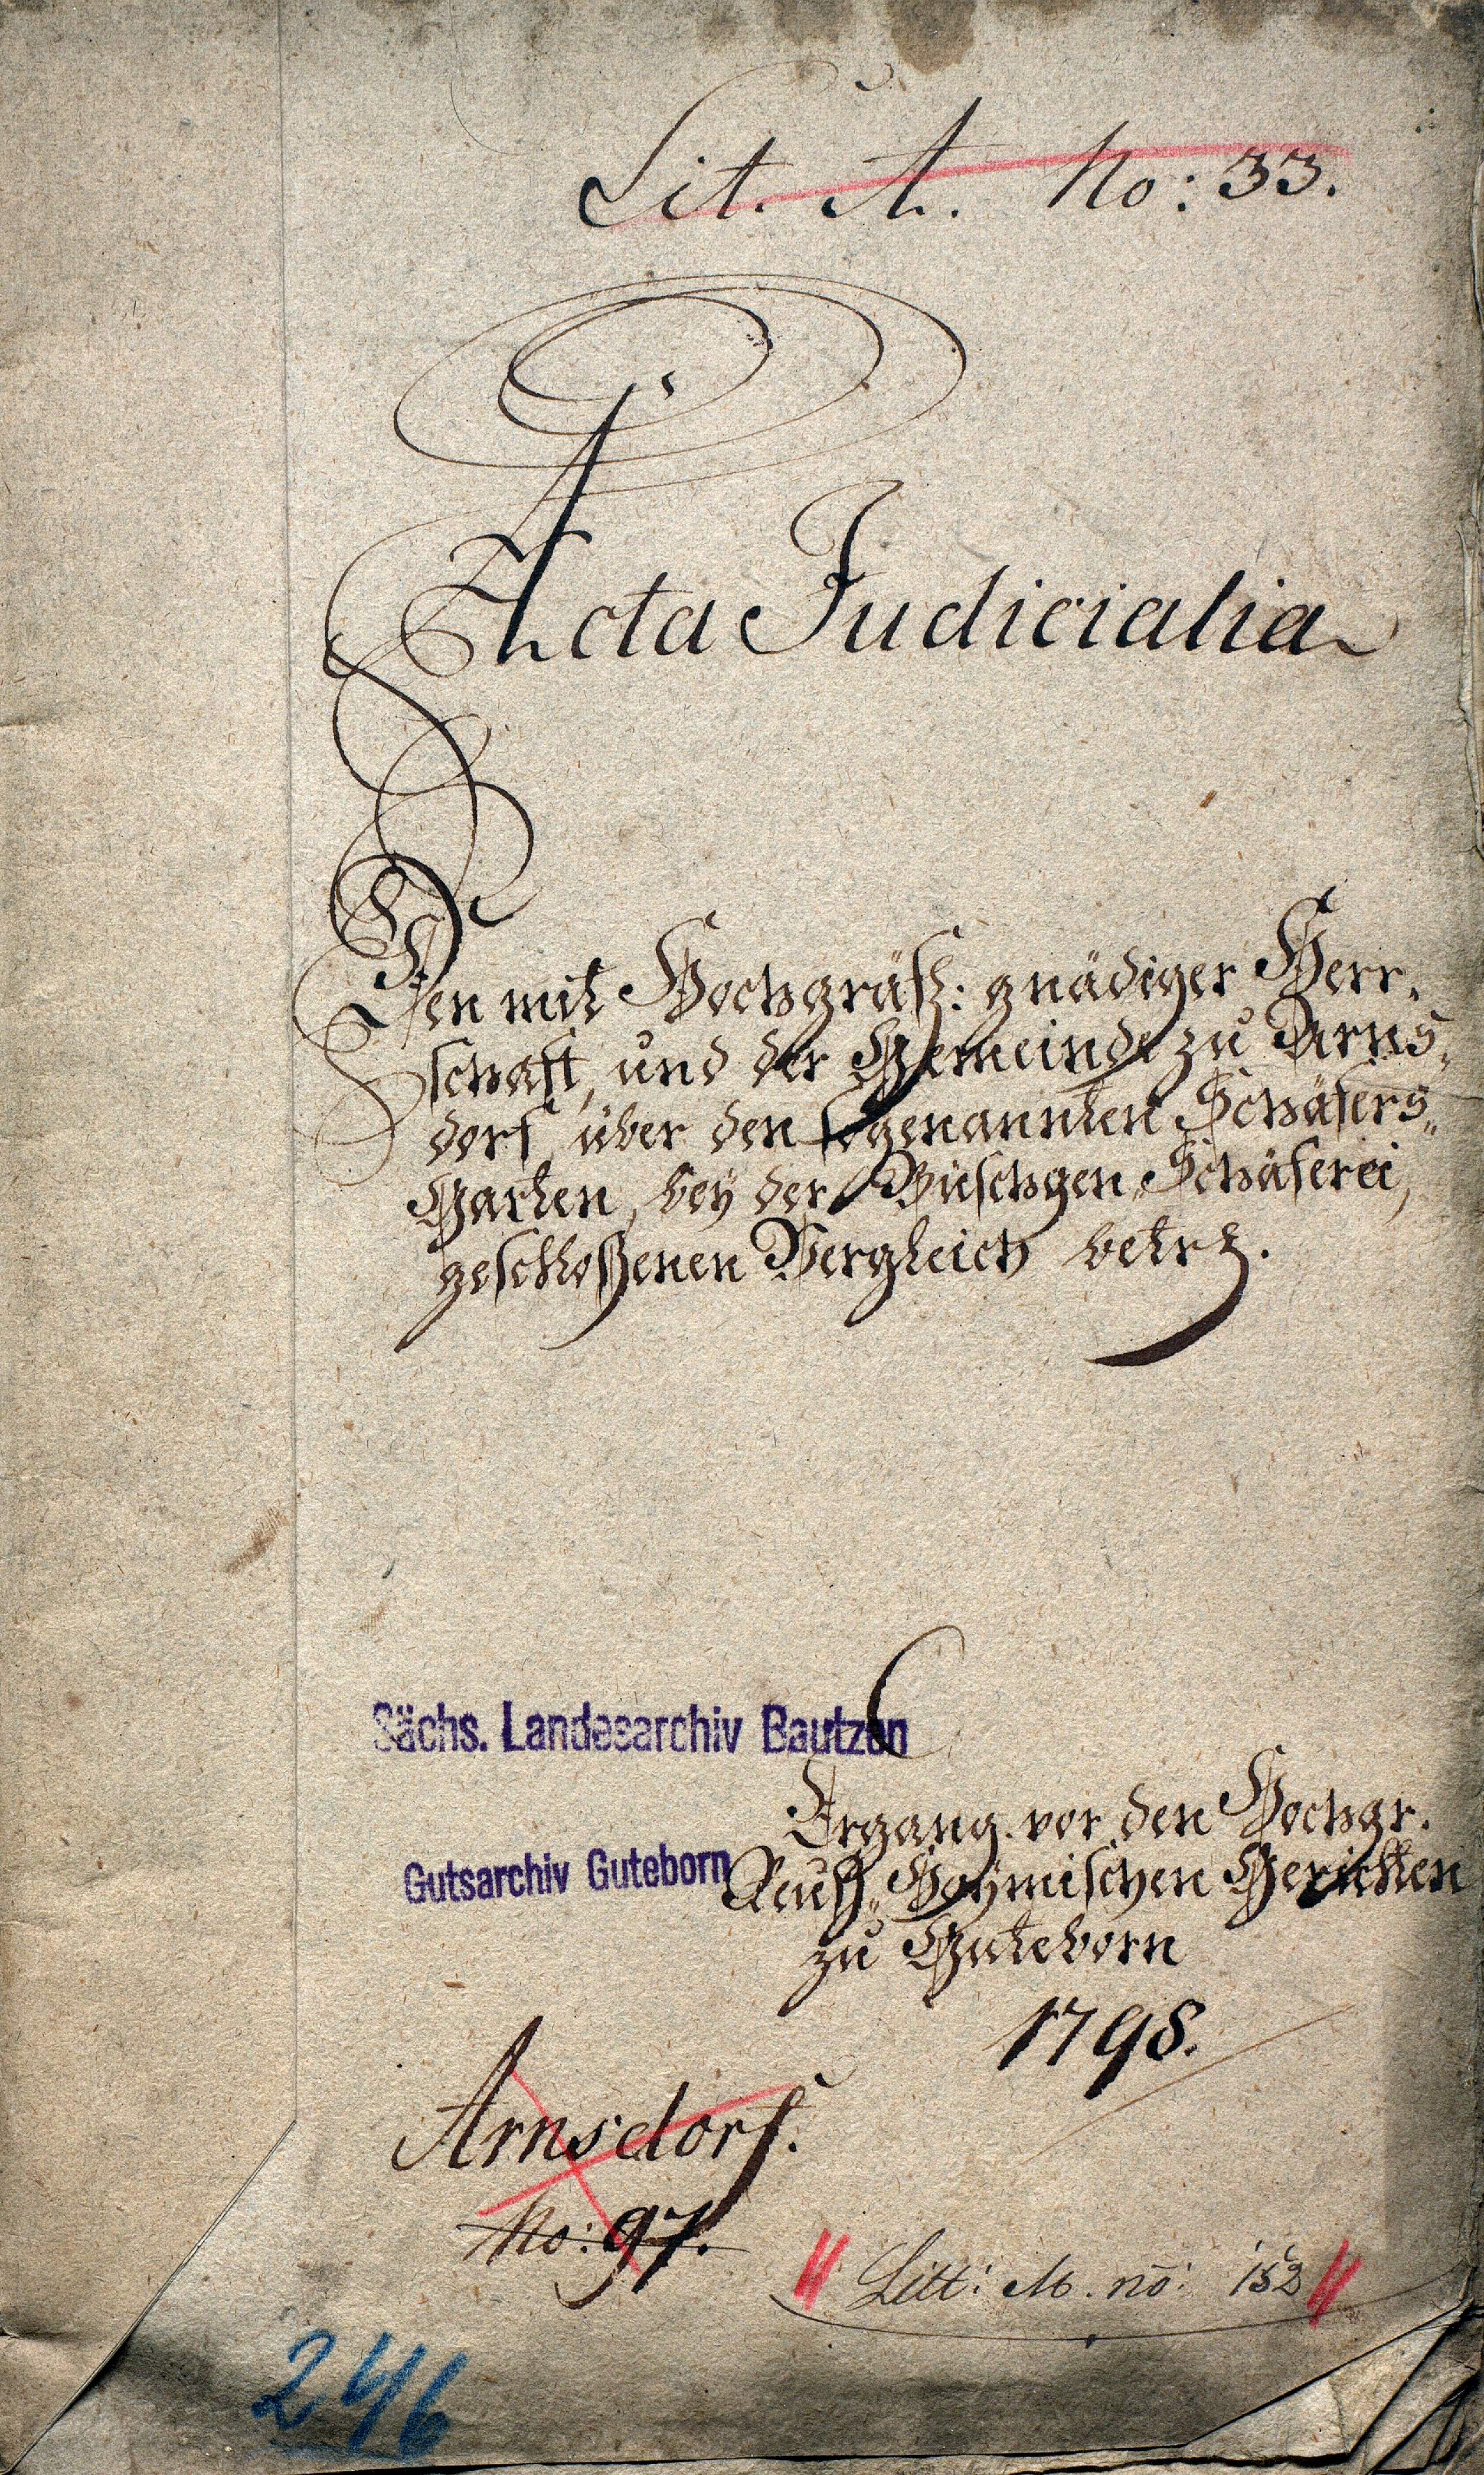 Lit. A. No: 33.
Acta Judicialia
Den mit Hochgräfl: gnädiger Herr,
schaft, und der Gemeinde zu Arns,,
dorf, über den sogenannten Schäfers,,
Garten, bey der Büschgen,,Schäferei,
geschloßenen Vergleich betrl.
Sächs. Landesarchiv Bautzen
Ergang. vor den Hochgr.
Gutsarchiv Guteborn
Reuß,,Hoymischen Gerichten
zu Guteborn
1798.
Arnsdorf.
No: 97.
Litt: M. no: 152
246